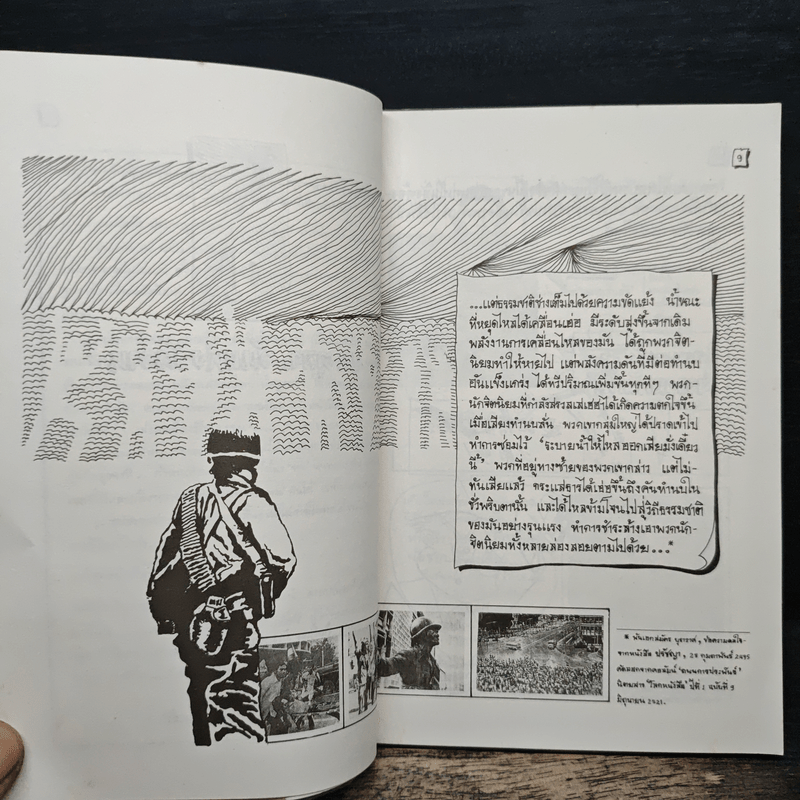 ๑
...แต่ธรรมชาติช่างเต็มไปด้วยความขัดแย้ง น้ำขณะ
ที่หยุดไหลได้เคลื่อนเอ่อ มีระดับสูงขึ้นจากเดิม
พลังงานการเคลื่อนไหลของมัน ได้ถูกพวกจิต-
นิยมทำให้หายไป แต่พลังความดันที่มีต่อทำนบ
อันแข็งแกร่ง ได้ทวีปริมาณเพิ่มขึ้นทุกทีๆ พวก-
นักจิตนิยมที่กำลังสรวลเสเฮฮาได้เกิดความตกใจขึ้น
เมื่อเสียงทำนบลั่น พวกเขากลุ่มใหญ่ได้ปราดเข้าไป
ทำการซ่อมไว้ "ระบายน้ำให้ไหลออกเสียมั่งเดี๋ยว
นี้" พวกที่อยู่ทางซ้ายของพวกเขากล่าว แต่ไม่-
ทันเสียแล้ว กระแสธารได้เอ่อขึ้นถึงคันทำนบใน
ชั่วพริบตานั้น และได้ไหลข้ามโจนไปสู่วิถีธรรมชาติ
ของมันอย่างรุนแรง ทำการชำระล้างเอาพวกนัก-
จิตนิยมทั้งหลายล่องลอยตามไปด้วย...*
* พันเอกสมัคร บุราวาศ,
จากหนังสือ ปรัชญา, 28 กุมภาพันธ์
คัดลอกจากคอลัมน์
นิตยสาร 'โลกหนังสือ' ปีที่ 1 ฉบับที่ 9
มิถุนายน 2521.